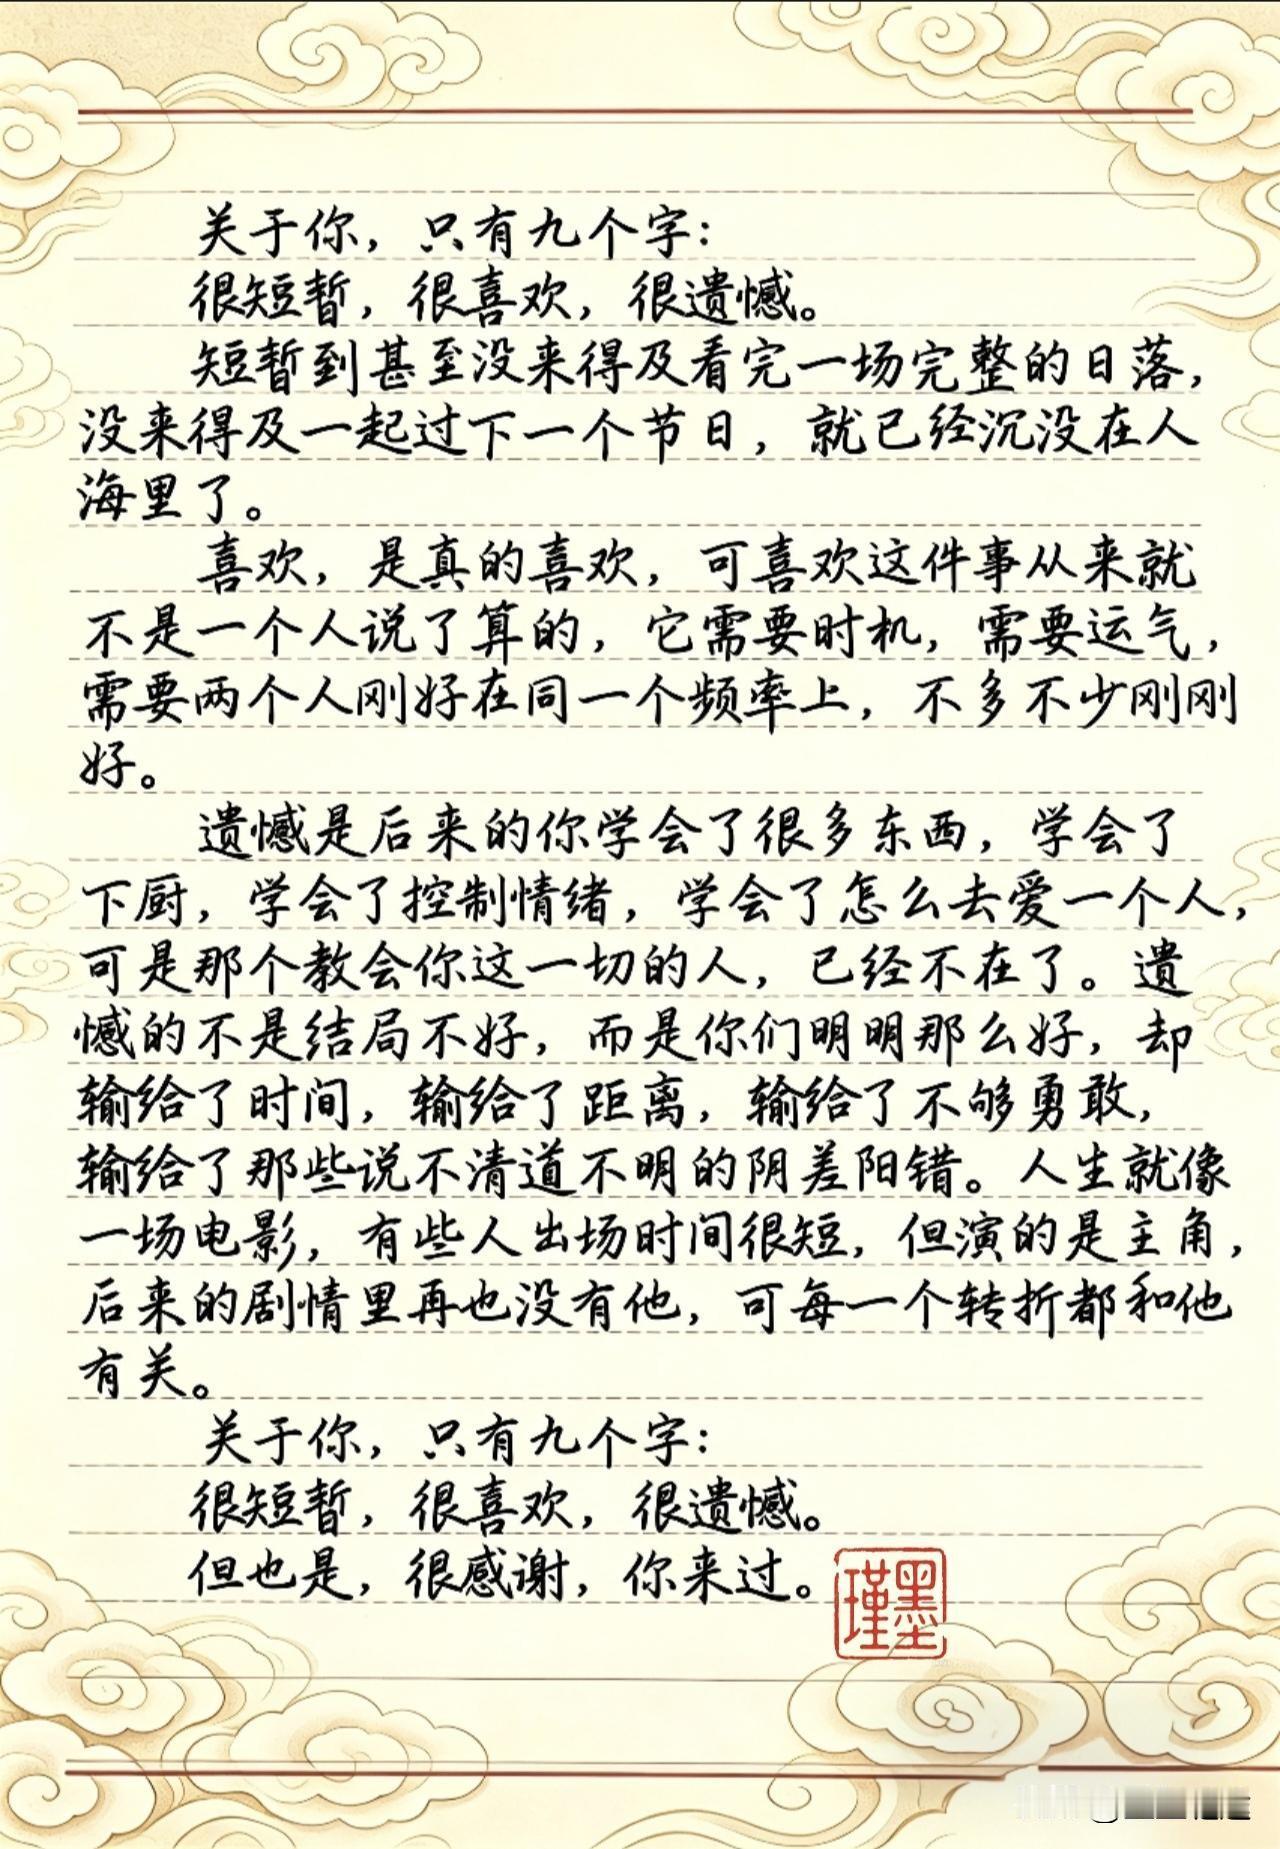 关于你，只有九个字：
很短暂，很喜欢，很遗憾。
短暂到甚至没来得及看完一场完整的日落，
没来得及一起过下一个节日，就已经沉没在人
海里了。
喜欢，是真的喜欢，可喜欢这件事从来就
不是一个人说了算的，它需要时机，需要运气，
需要两个人刚好在同一个频率上，不多不少刚刚
好。
遗憾是后来的你学会了很多东西，学会了
下厨，学会了控制情绪，学会了怎么去爱一个人，
可是那个教会你这一切的人，已经不在了。遗
憾的不是结局不好，而是你们明明那么好，却
输给了时间，输给了距离，输给了不够勇敢，
输给了那些说不清道不明的阴差阳错。人生就像
一场电影，有些人出场时间很短，但演的是主角，
后来的剧情里再也没有他，可每一个转折都和他
有关。
关于你，只有九个字：
很短暂，很喜欢，很遗憾。
但也是，很感谢，你来过。
墨瑾